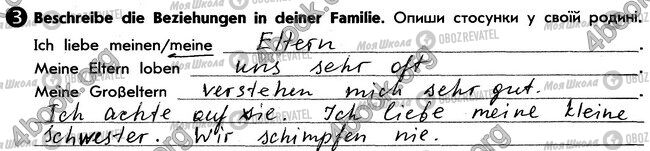 3 Beschreibe die Beziehungen in deiner Familie. Опиши стосунки у своїй родині.
Ich liebe meinen/meine Eltern
Meine Eltern loben uns sehr oft
Meine Großeltern verstehen mich sehr gut.
Ich achte auf sie. Ich liebe meine kleine
Schwester. Wir schimpfen nie.